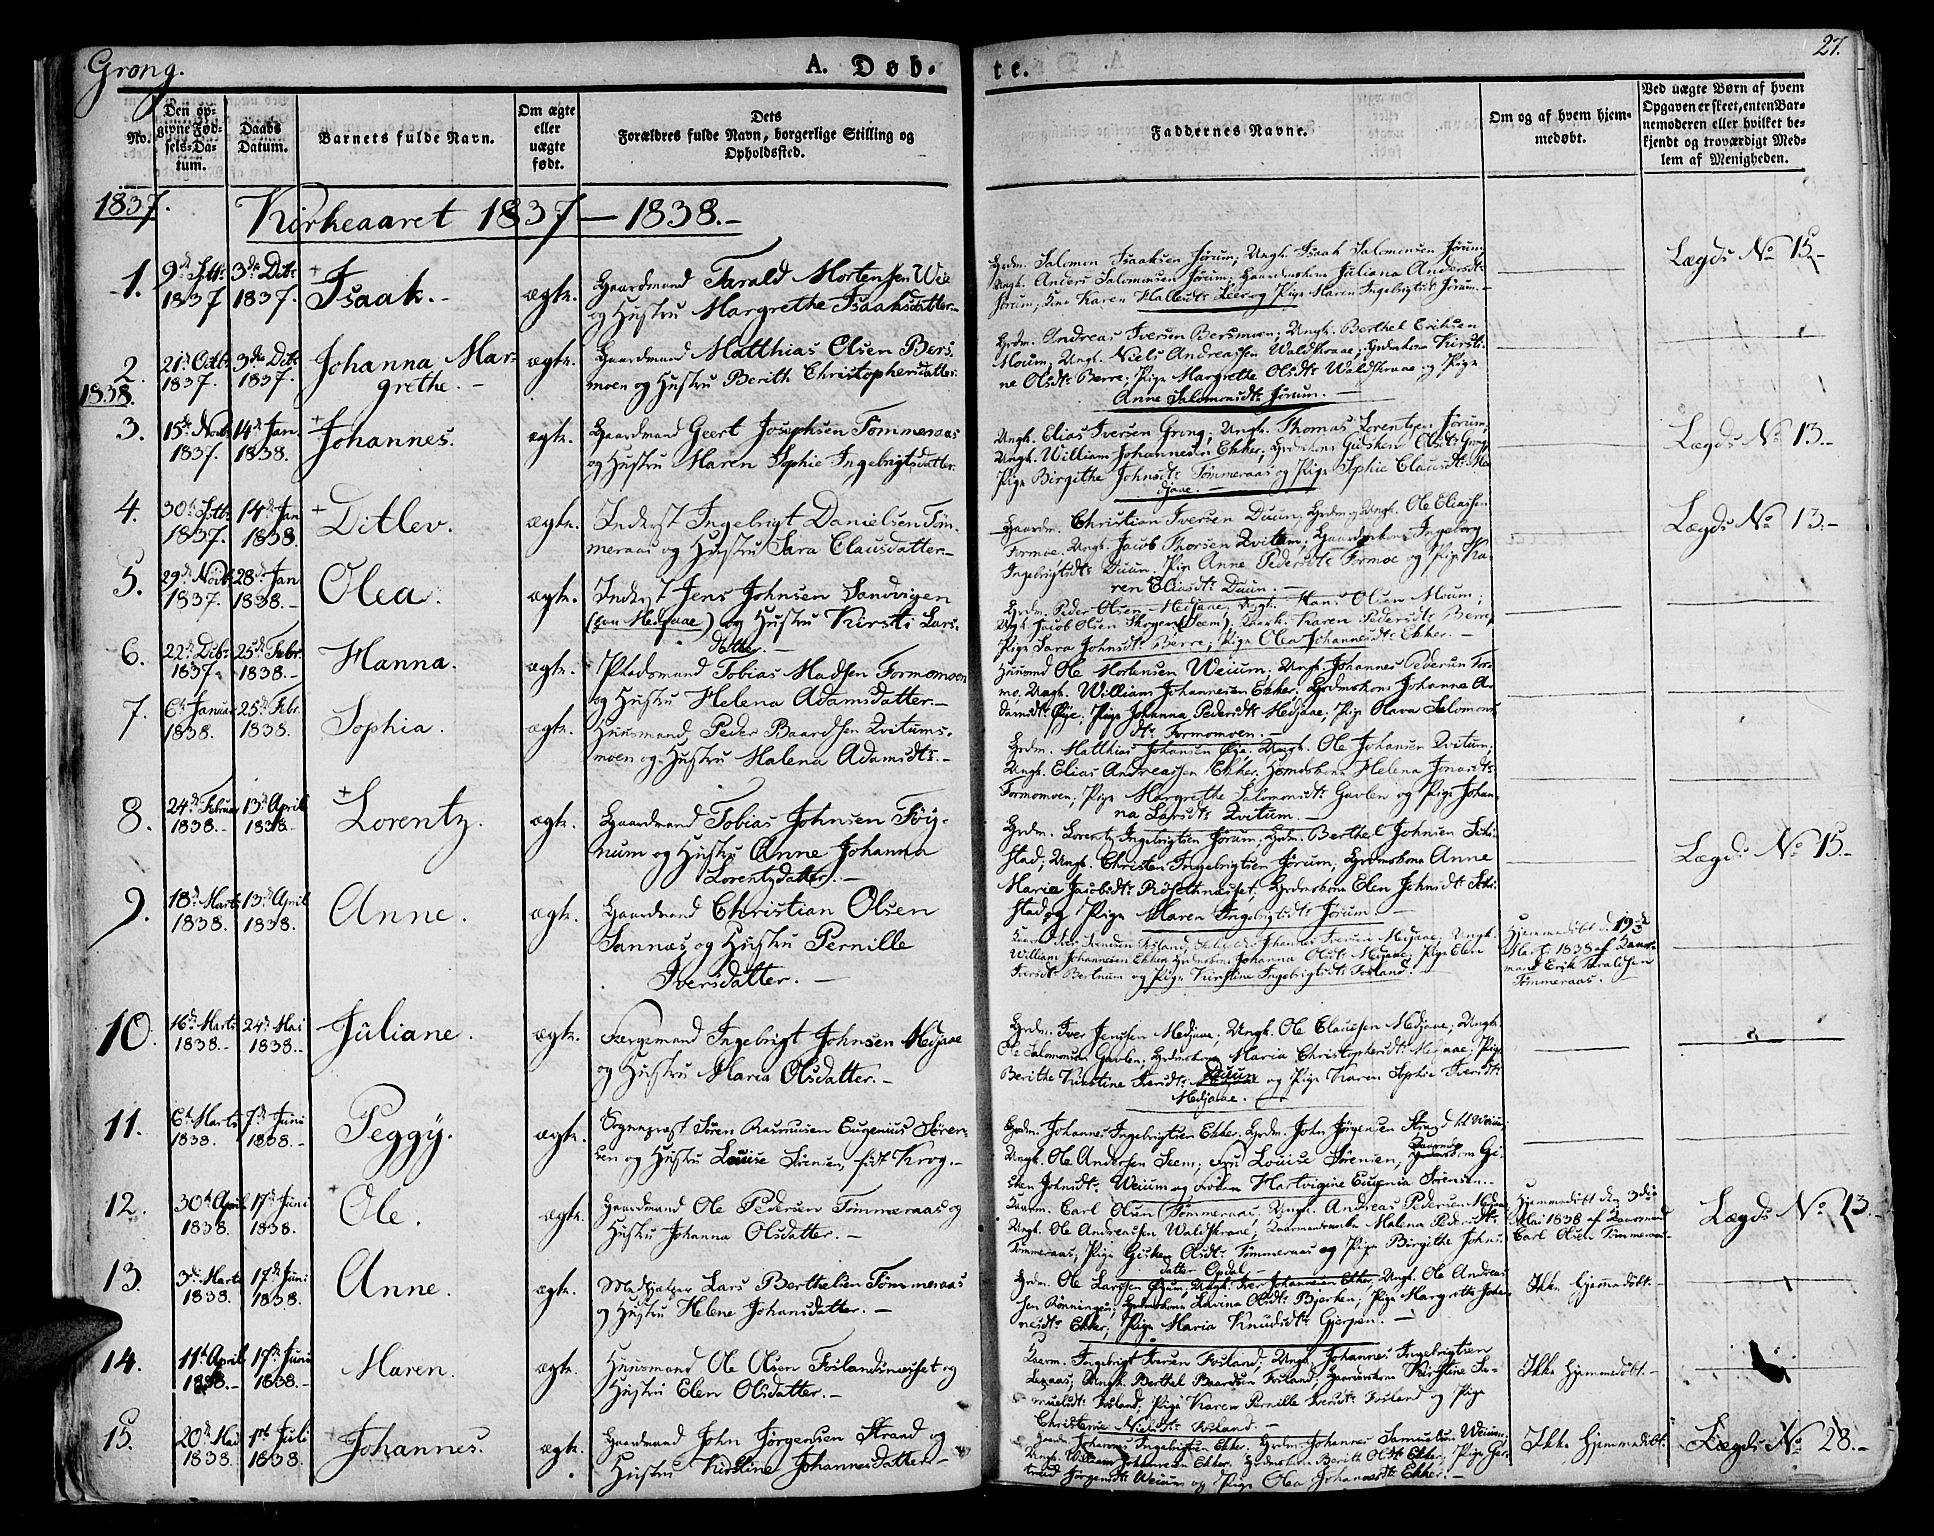 Grong.
A. Døb-
te.
27.
No.
Den op-
givne Fød-
sels-Da-
tum.
Daabs
Datum.
Barnets fulde Navn.
Om ægte
eller
uægte
født.
Dets
Forældres fulde Navn, borgerlige Stilling og
Opholdssted.
Faddernes Navne.
Om og af hvem hjem-
medøbt.
Ved uægte Børn af hvem
Opgaven er skeet, enten Bar-
nemoderen eller hvilket be-
kjendt og troværdigt Med-
lem af Menigheden.
1837.
Kirkeaaret 1837 — 1838.-
1. 9de Sptbr 1837 3die Dcbr 1837. Isaak. ægte.
Gaardmand Tarald Mortensen Wee
og Hustru Margrethe Isaaksdatter.-
Grdm. Salomon Isaaksen Jørum; Ungk. Isaak Salomonsen Jørum;
Ungk. Anders Salomonsen Jørum; Gaardmkone Juliana Andersdt.
Jørum; Kone Karen og Pige Maren Ingebrigtsdt. Jørum.-
Lægds No 15.-
2. 21de Octbr 1837. 3die Dcbr 1837. Johanna Mar-
grethe. - ægte.
Gaardmand Matthias Olsen Bers-
moen og Hustru Berith Christophersdatter.
Grdm. Andreas Iversen Bersmoen; Ungk. Berthel Eriksen
Moum; Ungk. Niels Andreassen Waldskraae; Grdmkone Kirsti-
ne Olsdt. Berre; Pige Margrethe Olsdt. Waldskraae og Pige
Anne Salomonsdt. Jørum. -
1838.
3. 15de Novbr 1837. 14de Jan. 1838. Johannes. ægte.
Gaardmand Geert Josephsen Tømmeraas
og Hustru Maren Sophie Ingebrigtsdatter.
Ungk. Elias Iversen Grong; Ungk. Thomas Lorentzen Jørum;
Ungk. William Johannesen Ekker; Grdmkone Olsdt. Grong
Pige Birgithe Johnsdt. Tømmeraas og Pige Sophie Clausdt. Me-
djaae. -
Lægds No 13.-
4. 30te Sptbr 1837. 14de Jan 1838. Ditlev. ægte.
Inderst Ingebrigt Danielsen Tøm-
meraas og Hustru Sara Clausdatter.-
Gaardm. Christian Iversen Duun; Ungk. Ole Eliassen
Formoe. Ungk. Jacob Thorsen Gaardmkone Ingeborg
Ingebrigtsdt. Duun. Pige Anne Pedersdt. Formoe og Pige Ka-
ren Eliasdt. Duun. -
Lægds No 13.-
5. 29de Novbr 1837. 28de Jan 1838.- Olea. ægte.
Inderst Jens Johnsen Sandvigen
(paa Medjaae) og Hustru Kirsti Lars-
datter. -
Grdm. Peder Olsen Medjaae; Ungk. Hans Olsen Moum;
Ungk. Jacob Olsen (Seem); Karen Pedersdt. Berre;
Pige Sara Johnsdt. Berre; Pige Olea Johannesdt. Ekker. -
6. 22de Dcbr 1837. 25de Febr. 1838.- Hanna. ægte.
Pladsmand Tobias Madsen Formomoen
og Hustru Helena Adamsdatter.-
Huusmd Ole Mortensen Weium; Ungk. Johannes Pedersen For-
mo. Ungk. William Johannesen Ekker. Grdmkone Johanna A-
damsdt. Øye; Pige Johanna Pedersdt. Medjaae; Pige Olava Salomons-
dt. Formomoen. -
7. 6te Januar 1838. 25de Febr. 1838. Sophia. ægte.
Huusmand Peder Baardsen Zvitums-
moen og Hustru Malena Adamsdt. -
Grdm. Matthias Johansen Øye. Ungk. Ole Johansen Zvitum;
Ungk. Elias Andreassen Ekker. Helena Jonasdt.
Formomoen; Pige Margrethe Salomonsdt. Gavlen og Pige Johan-
na Larsdt. Zvitum. -
8. 24de Februar 1838.- 13de April 1838.- Lorentz. ægte.
Gaardmand Tobias Johnsen Føy-
num og Hustru Anne Johanna
Lorentzdatter. -
Grdm. Lorentz Ingebrigtsen Jørum; Grdm. Berthel Johnsen
stad; Ungk. Christen Ingebrigtsen Jørum; Grdmskone Anne
Maria Jacobsdt. Rosethnesset; Grdmskone Elen Johnsdt.
stad og Pige Maren Ingebrigtsdt. Jørum. -
Lægds No 15.-
9. 18de Marts 1838. 13de April 1838. Anne. ægte.
Gaardmand Christian Olsen
Sannæs og Hustru Pernille
Iversdatter. -
Johannes Iversen Medjaae; Ungk.
William Johannesen Ekker; Johanna Olsdt. Medjaae; Pige Elen
Iversdt. Bertnum og Pige Kirstine Ingebrigtsdt. Fosland. -
Hjemmedøbt d. 19de
Marts 1838 af Gaard-
mand Erik Taraldsen
Tømmeraas.
10. 16de Marts 1838.- 24de Mai 1838.- Juliane. ægte.
Færgemand Ingebrigt Johnsen Medjaae
og Hustru Maria Olsdatter. -
Grdm. Iver Jensen Medjaae; Ungk. Ole Claussen Medjaae; Ungk.
Ole Salomonsen Gavlen; Grdmskone Maria Christophersdt. Medjaae; Pige
Berithe Kirstine Iversdt. Duun og Pige Karen Sophie Iversdt.
Medjaae. -
11. 6te Marts 1838. 7de Juni 1838. - Peggy. ægte.
Sognepræst Søren Rasmusen Eugenius Søren-
sen og Hustru Louise Sørensen, født Krog.-
Grdm. Johannes Ingebrigtsen Ekker. Grdm. John Jørgensen Strand Weium
Ungk. Ole Andersen Seem; Fru Louise Sørensen, Gi-
sken Johnsdt. Weium og Frøken Hartvigine Eugenia Sørensen.-
12. 30te April 1838. 17de Juni 1838. Ole. ægte.
Gaardmand Ole Pedersen Tømmeraas og
Hustru Johanna Olsdatter. -
Gaarm. Carl Olsen Tømmeraas, Ungk. Andreas Pedersen
Ungk. Ole Andreassen Waldskraae; Malena Pedersdt.
Tømmeraas; Pige Gisken Olsdt. Tømmeraas og Pige Birgithe Johns-
datter Opdal. -
Hjemmedøbt den 3die
Mai 1838 af Gaardmand
Carl Olsen Tømmeraas.
Lægds No 13.-
13. 3die Marts 1838. 17de Juni 1838. Anne. ægte.
Medhjelper Lars Berthelsen Tømmeraas
og Hustru Helene Johansdatter. -
Grdm. Ole Larssen Ungk. Iver Johannesen Ekker, Ungk. Ole Andreas-
sen Rønningen; Grdmskone Lavina Olsdt. Bjerken; Pige Margrethe Johan-
nesdt. Ekker; Pige Maria Knudsdt. Gjersen. -
Ikke Hjemmedøbt.
14. 11te April 1838.- 17de Juni 1838. Maren. ægte.
Huusmand Ole Olsen Foslandsnesset og
Hustru Elen Olsdatter. -
Gaarm. Ingebrigt Iversen Fosland, Ungk. Johannes Ingebrigtsen
Ungk. Berthel Baardsen Fosland; Kirstine Sa-
muelsdt. Fosland, Pige Karen Pernille Iversdt. Fosland og Pige
Christine Nielsdt. Fosland. -
Ikke Hjemmedøbt. -
15. 20de Mai 1838. 1ste Juli 1838. Johannes. ægte.
Gaardmand John Jørgensen Strand og
Hustru Kirstine Johannesdatter.-
Johannes Ingebrigtsen Ekker. Grdm. Johannes Samuelsen Weium;
Ungk. William Johannesen Ekker; Grdmskone Berith Olsdt. Ekker; Pige Ger-
trud Jørgensdt. Weium og Pige Olea Johannesdt. Ekker. -
Ikke Hjemmedøbt.
Lægds No 28.-